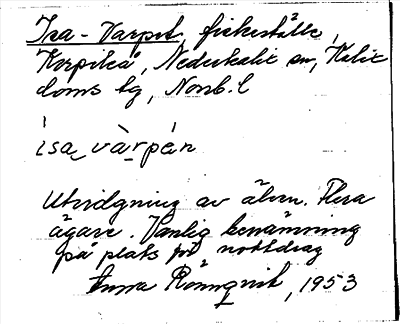 Isa-Varpet, fiskeställe,
Korpikå, Nederkalix sn, Kalix
doms tg, Norrb. l
ìsa vàrpén
Utvidgning av älven. Flera
ägare. Vanlig benämning
på plats för notdrag
Anna Rönnqvist, 1953